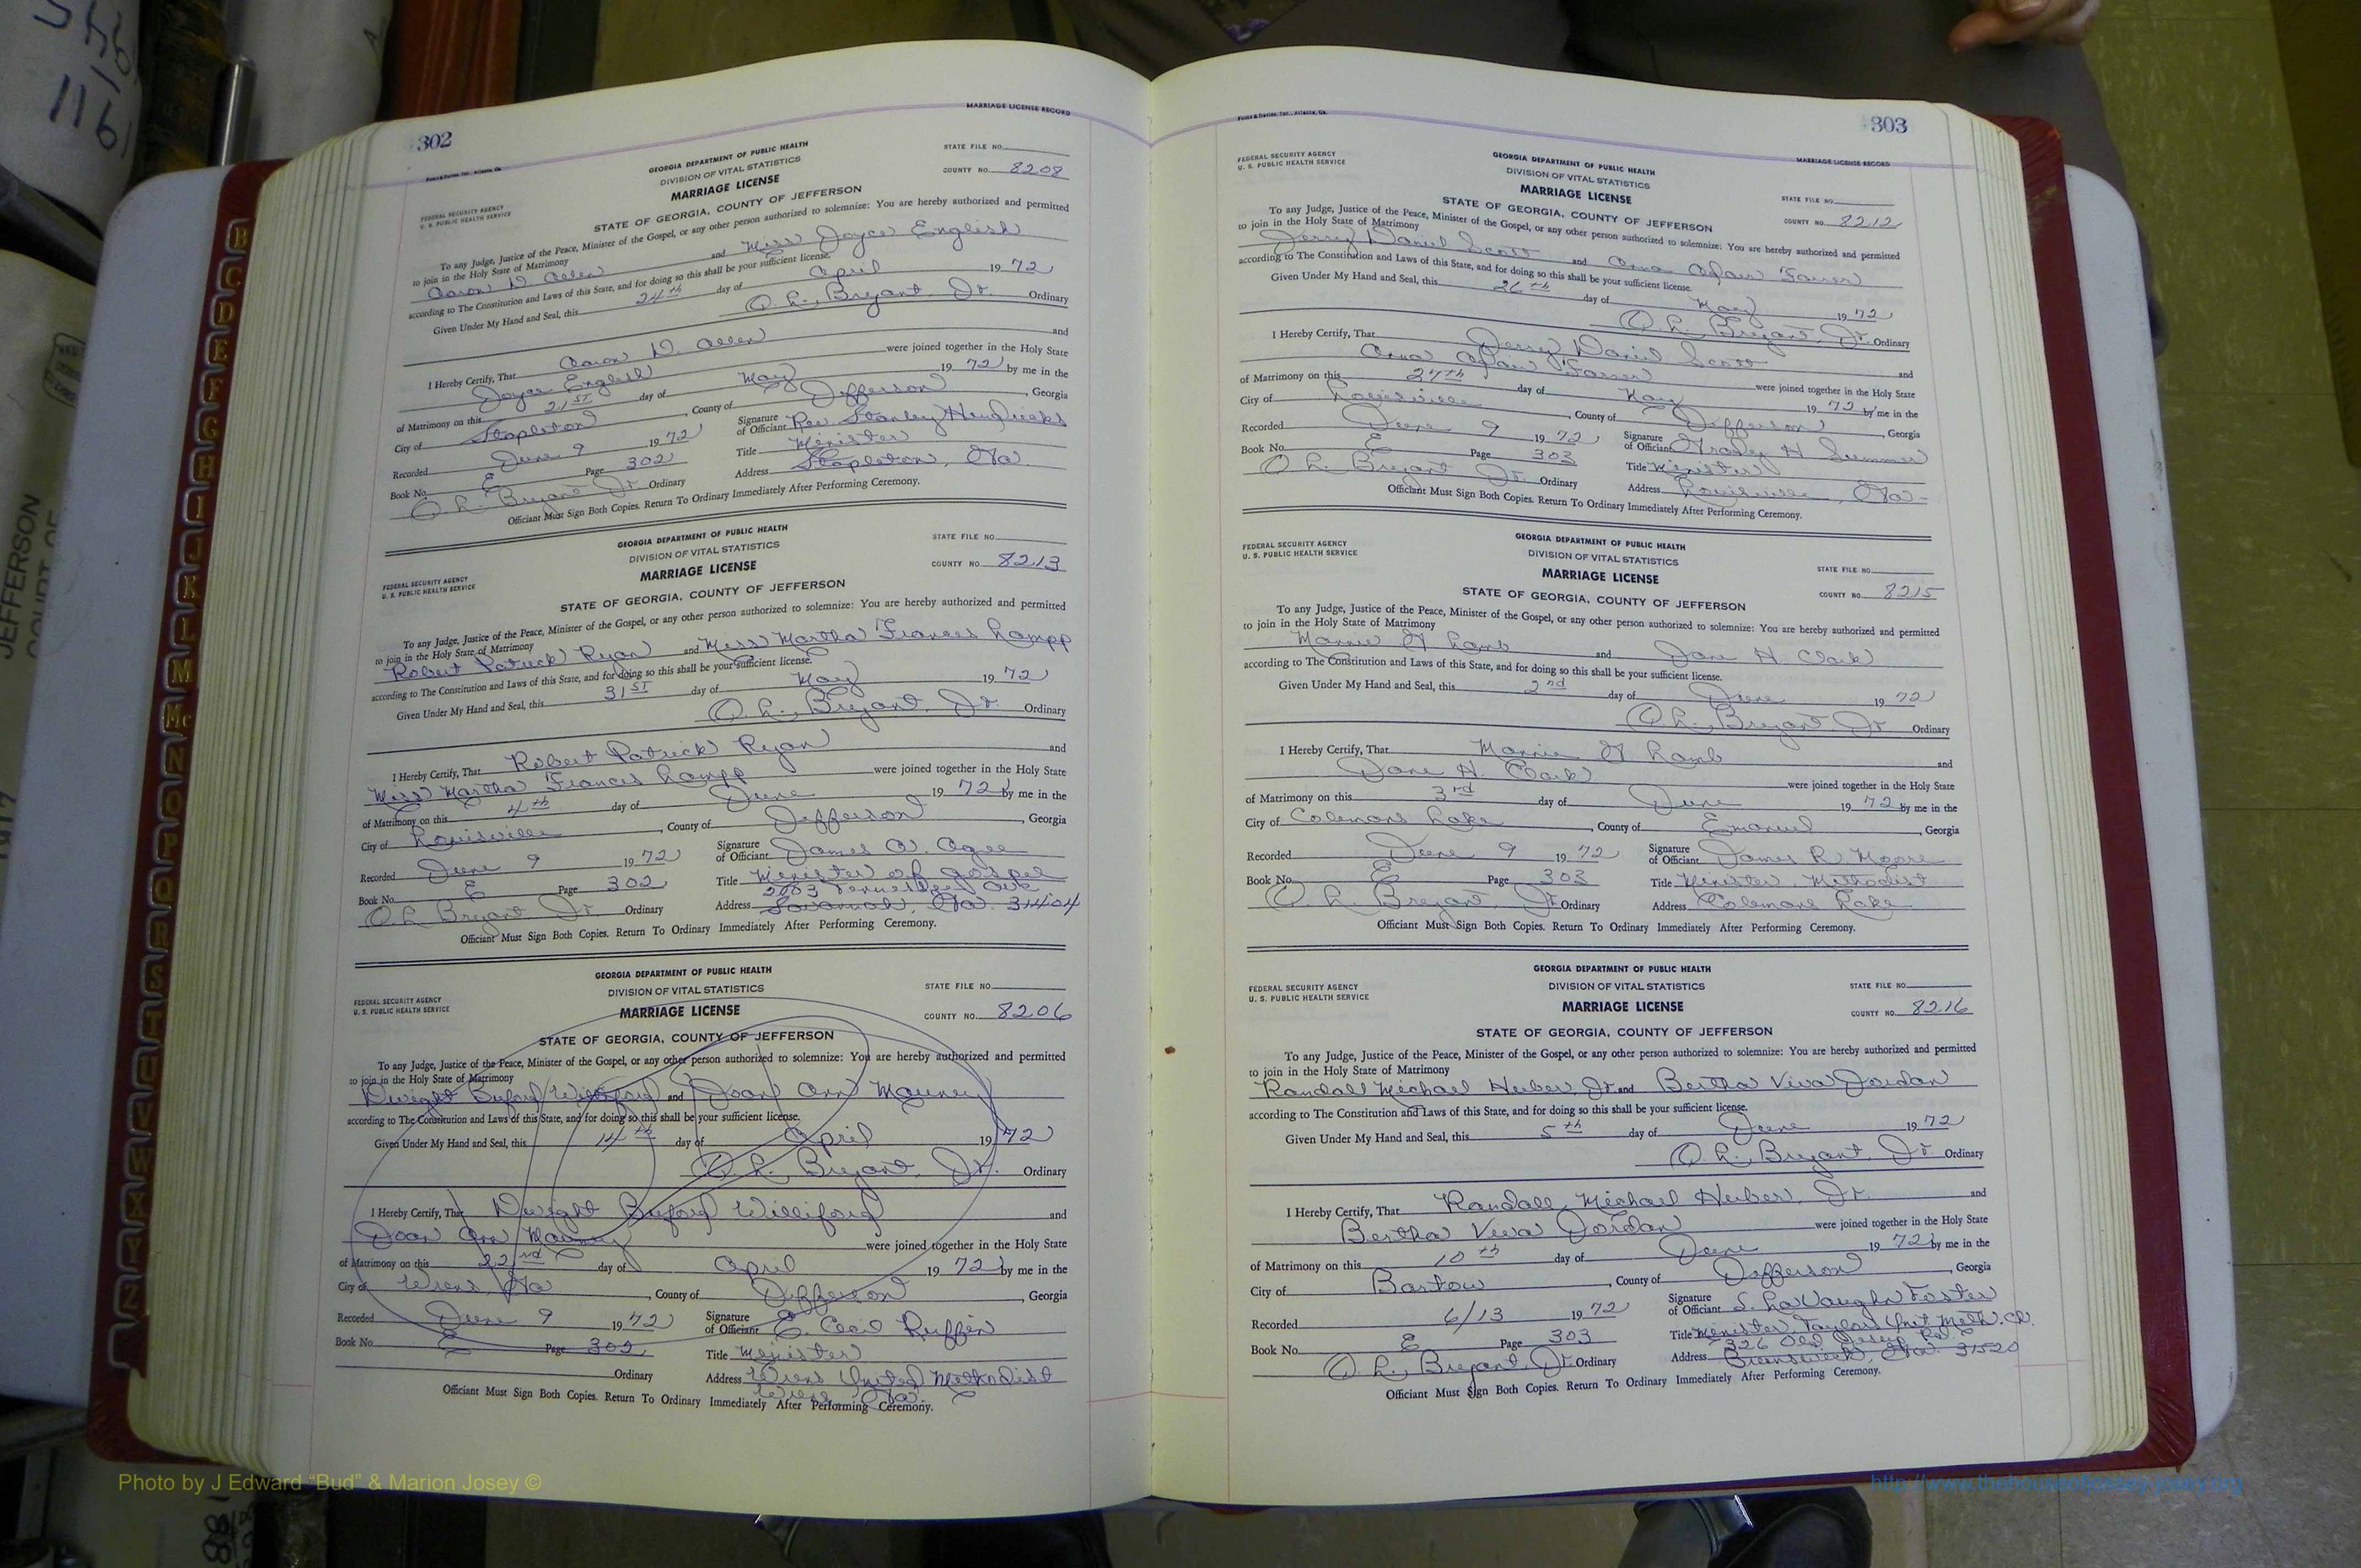 302
MARRIAGE LICENSE RECORD
Foote & Davies, Inc., Atlanta, Ga.
GEORGIA DEPARTMENT OF PUBLIC HEALTH
DIVISION OF VITAL STATISTICS
MARRIAGE LICENSE
STATE FILE NO.
COUNTY NO. 8208
FEDERAL SECURITY AGENCY
U. S. PUBLIC HEALTH SERVICE
STATE OF GEORGIA, COUNTY OF JEFFERSON
To any Judge, Justice of the Peace, Minister of the Gospel, or any other person authorized to solemnize: You are hereby authorized and permitted
to join in the Holy State of Matrimony
Aaron D. Allen and Miss Joyce English
according to The Constitution and Laws of this State, and for doing so this shall be your sufficient license.
Given Under My Hand and Seal, this 24th day of April 1972
O. L. Bryant, Jr. Ordinary
I Hereby Certify, That Aaron D. Allen and
Joyce English were joined together in the Holy State
of Matrimony on this 21st day of May 1972 by me in the
City of Stapleton, County of Jefferson, Georgia
Recorded June 9 1972 Signature of Officiant Rev. Stanley Hendricks
Book No. E Page 302 Title Minister
O. L. Bryant Jr. Ordinary Address Stapleton, Ga
Officiant Must Sign Both Copies. Return To Ordinary Immediately After Performing Ceremony.
GEORGIA DEPARTMENT OF PUBLIC HEALTH
DIVISION OF VITAL STATISTICS
MARRIAGE LICENSE
STATE FILE NO.
COUNTY NO. 8213
FEDERAL SECURITY AGENCY
U. S. PUBLIC HEALTH SERVICE
STATE OF GEORGIA, COUNTY OF JEFFERSON
To any Judge, Justice of the Peace, Minister of the Gospel, or any other person authorized to solemnize: You are hereby authorized and permitted
to join in the Holy State of Matrimony
Robert Patrick Ryan and Miss Martha Frances Lampp
according to The Constitution and Laws of this State, and for doing so this shall be your sufficient license.
Given Under My Hand and Seal, this 31st day of May 1972
O. L. Bryant, Jr. Ordinary
I Hereby Certify, That Robert Patrick Ryan and
Miss Martha Frances Lampp were joined together in the Holy State
of Matrimony on this 4th day of June 1972 by me in the
City of Louisville, County of Jefferson, Georgia
Recorded June 9 1972 Signature of Officiant James W. Agee
Book No. E Page 302 Title Minister of gospel
2003 Tennessee Ave
O. L. Bryant Jr. Ordinary Address Savannah, Ga. 31404
Officiant Must Sign Both Copies. Return To Ordinary Immediately After Performing Ceremony.
GEORGIA DEPARTMENT OF PUBLIC HEALTH
DIVISION OF VITAL STATISTICS
MARRIAGE LICENSE
STATE FILE NO.
COUNTY NO. 8206
FEDERAL SECURITY AGENCY
U. S. PUBLIC HEALTH SERVICE
STATE OF GEORGIA, COUNTY OF JEFFERSON
To any Judge, Justice of the Peace, Minister of the Gospel, or any other person authorized to solemnize: You are hereby authorized and permitted
to join in the Holy State of Matrimony
Dwight Buford Williford and Joan Ann Mauney
according to The Constitution and Laws of this State, and for doing so this shall be your sufficient license.
Given Under My Hand and Seal, this 14th day of April 1972
O. L. Bryant, Jr. Ordinary
I Hereby Certify, That Dwight Buford Williford and
Joan Ann Mauney were joined together in the Holy State
of Matrimony on this 22nd day of April 1972 by me in the
City of Wrens, Ga, County of Jefferson, Georgia
Recorded June 9 1972 Signature of Officiant E. Cecil Ruffin
Book No. E Page 302 Title Minister
Ordinary Address Wrens United Methodist
Wrens, Ga.
Officiant Must Sign Both Copies. Return To Ordinary Immediately After Performing Ceremony.
Foote & Davies, Inc., Atlanta, Ga.
303
MARRIAGE LICENSE RECORD
FEDERAL SECURITY AGENCY
U. S. PUBLIC HEALTH SERVICE
GEORGIA DEPARTMENT OF PUBLIC HEALTH
DIVISION OF VITAL STATISTICS
MARRIAGE LICENSE
STATE FILE NO.
COUNTY NO. 8212
STATE OF GEORGIA, COUNTY OF JEFFERSON
To any Judge, Justice of the Peace, Minister of the Gospel, or any other person authorized to solemnize: You are hereby authorized and permitted
to join in the Holy State of Matrimony
Jerry Daniel Scott and Anna
according to The Constitution and Laws of this State, and for doing so this shall be your sufficient license.
Given Under My Hand and Seal, this 26th day of May 1972
O. L. Bryant, Jr. Ordinary
I Hereby Certify, That Jerry Daniel Scott and
Anna were joined together in the Holy State
of Matrimony on this 27th day of May 1972 by me in the
City of Louisville, County of Jefferson, Georgia
Recorded June 9 1972 Signature of Officiant Grady H Summer
Book No. E Page 303 Title Minister
O. L. Bryant Jr. Ordinary Address Louisville, Ga
Officiant Must Sign Both Copies. Return To Ordinary Immediately After Performing Ceremony.
FEDERAL SECURITY AGENCY
U. S. PUBLIC HEALTH SERVICE
GEORGIA DEPARTMENT OF PUBLIC HEALTH
DIVISION OF VITAL STATISTICS
MARRIAGE LICENSE
STATE FILE NO.
COUNTY NO. 8215
STATE OF GEORGIA, COUNTY OF JEFFERSON
To any Judge, Justice of the Peace, Minister of the Gospel, or any other person authorized to solemnize: You are hereby authorized and permitted
to join in the Holy State of Matrimony
Mannie H Lamb and Jane H. Clark
according to The Constitution and Laws of this State, and for doing so this shall be your sufficient license.
Given Under My Hand and Seal, this 2nd day of June 1972
O. L. Bryant Jr Ordinary
I Hereby Certify, That Mannie H Lamb and
Jane H. Clark were joined together in the Holy State
of Matrimony on this 3rd day of June 1972 by me in the
City of Colemans Lake, County of Emanuel, Georgia
Recorded June 9 1972 Signature of Officiant James R. Moore
Book No. E Page 303 Title Minister, Methodist
O. L. Bryant, Jr Ordinary Address Colemans Lake
Officiant Must Sign Both Copies. Return To Ordinary Immediately After Performing Ceremony.
FEDERAL SECURITY AGENCY
U. S. PUBLIC HEALTH SERVICE
GEORGIA DEPARTMENT OF PUBLIC HEALTH
DIVISION OF VITAL STATISTICS
MARRIAGE LICENSE
STATE FILE NO.
COUNTY NO. 8216
STATE OF GEORGIA, COUNTY OF JEFFERSON
To any Judge, Justice of the Peace, Minister of the Gospel, or any other person authorized to solemnize: You are hereby authorized and permitted
to join in the Holy State of Matrimony
Randall Michael Huber, Jr. and Bertha Viva Jordan
according to The Constitution and Laws of this State, and for doing so this shall be your sufficient license.
Given Under My Hand and Seal, this 5th day of June 1972
O. L. Bryant, Jr. Ordinary
I Hereby Certify, That Randall Michael Huber, Jr. and
Bertha Viva Jordan were joined together in the Holy State
of Matrimony on this 10th day of June 1972 by me in the
City of Bartow, County of Jefferson, Georgia
Recorded 6/13 1972 Signature of Officiant S. LaVaughn Foster
Book No. E Page 303 Title Minister, Taylors Unit Meth. Ch.
326 Old Jesup Rd.
O. L. Bryant, Jr Ordinary Address Brunswick, Ga. 31520
Officiant Must Sign Both Copies. Return To Ordinary Immediately After Performing Ceremony.
B
C
D
E
F
G
H
I
J
K
L
M
Mc
N
O
P
Q
R
S
T
U
V
W
X
Y
Z
JEFFERSON
COURT OF
Photo by J Edward “Bud” & Marion Josey ©